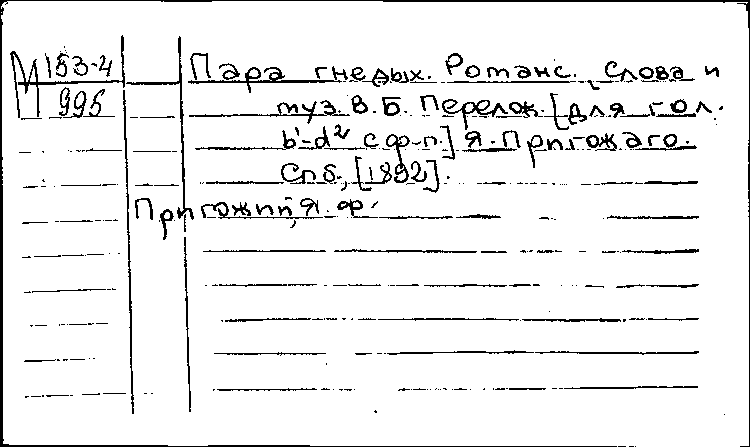 М 153-4
995
Пара гнедых. Романс. Слова и
муз. В. Б. Перелож. [для гол.
b'-d² с ф-п.] Я. Пригожаго.
Спб., [1892].
Пригожий, Я. Ф.